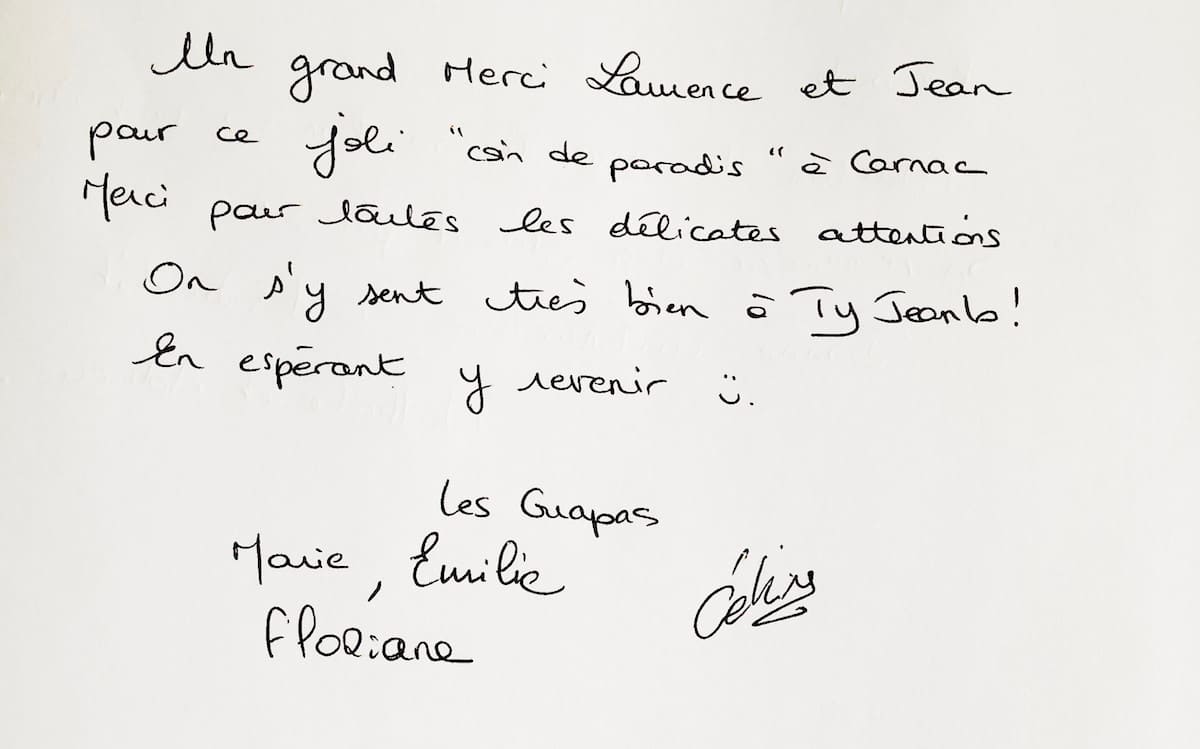 Un grand Merci Laurence et Jean
pour ce joli "coin de paradis" à Carnac
Merci pour toutes les délicates attentions
On s'y sent très bien à Ty Jeanlo!
En espérant y revenir ü.
Les Guapas
Marie, Émilie
Céline
Floriane